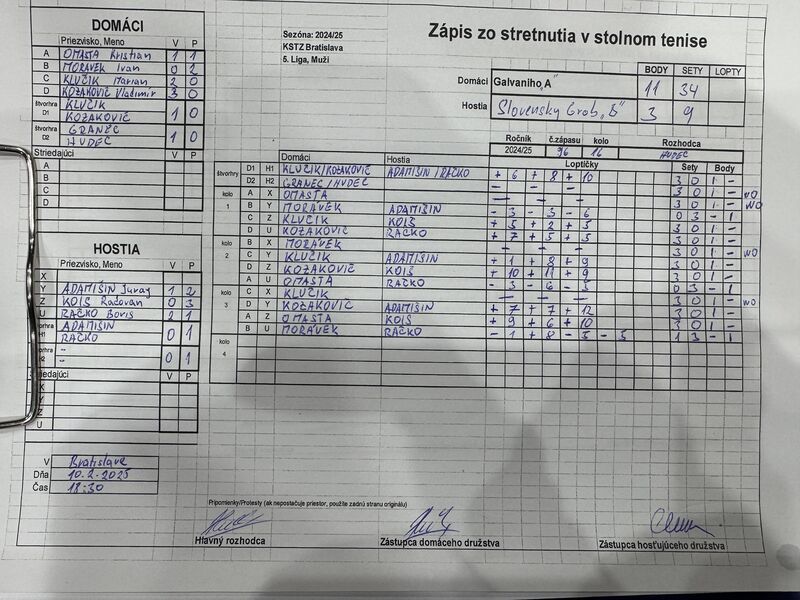 DOMÁCI
Priezvisko, Meno V P
A OMASTA Kristian 1 1
B MORÁVEK Ivan 0 2
C KLUČIK Marian 2 0
D KOZAKOVIČ Vladimír 3 0
štvorhra D1 KLUČIK KOZAKOVIČ 1 0
štvorhra D2 GRANEC HUDEC 1 0
Striedajúci V P
A
B
C
D
HOSTIA
Priezvisko, Meno V P
X
Y ADAMIŠIN Juraj 1 2
Z KOIS Račovan 0 3
U RAČKO Boris 2 1
H1 ADAMIŠIN RAČKO 0 1
H2 - - 0 1
Striedajúci V P
X
Y
Z
U
V Bratislave
Dňa 10.2.2025
Čas 18:30
Sezóna: 2024/25
KSTZ Bratislava
5. Liga, Muži
Zápis zo stretnutia v stolnom tenise
BODY SETY LOPTY
Domáci Galvaniho „A" 11 34
Hostia Slovensky Grob „B" 3 9
Ročník č.zápasu kolo Rozhodca
2024/25 96 16 HUDEC
Domáci Hostia Loptičky Sety Body
štvorhry D1 H1 KLUČIK/KOZAKOVIČ ADAMIŠIN/RAČKO + 6 + 8 + 10 3 0 1 -
D2 H2 GRANEC/HUDEC — — — 3 0 1 - WO
kolo 1 A X OMASTA — — — 3 0 1 - WO
B Y MORÁVEK ADAMIŠIN - 3 - 3 - 6 0 3 - 1
C Z KLUČIK KOIS + 5 + 2 + 5 3 0 1 -
D U KOZAKOVIČ RAČKO + 7 + 5 + 5 3 0 1 -
kolo 2 B X MORÁVEK — — — 3 0 1 - WO
C Y KLUČIK ADAMIŠIN + 1 + 8 + 9 3 0 1 -
D Z KOZAKOVIČ KOIS + 10 + 11 + 9 3 0 1 -
A U OMASTA RAČKO - 3 - 6 - 5 0 3 - 1
kolo 3 C X KLUČIK — — — 3 0 1 - WO
D Y KOZAKOVIČ ADAMIŠIN + 7 + 7 + 12 3 0 1 -
A Z OMASTA KOIS + 9 + 6 + 10 3 0 1 -
B U MORÁVEK RAČKO - 1 + 8 - 5 - 5 1 3 - 1
kolo 4
Pripomienky/Protesty (ak nepostačuje priestor, použite zadnú stranu originálu)
Hlavný rozhodca Zástupca domáceho družstva Zástupca hosťujúceho družstva